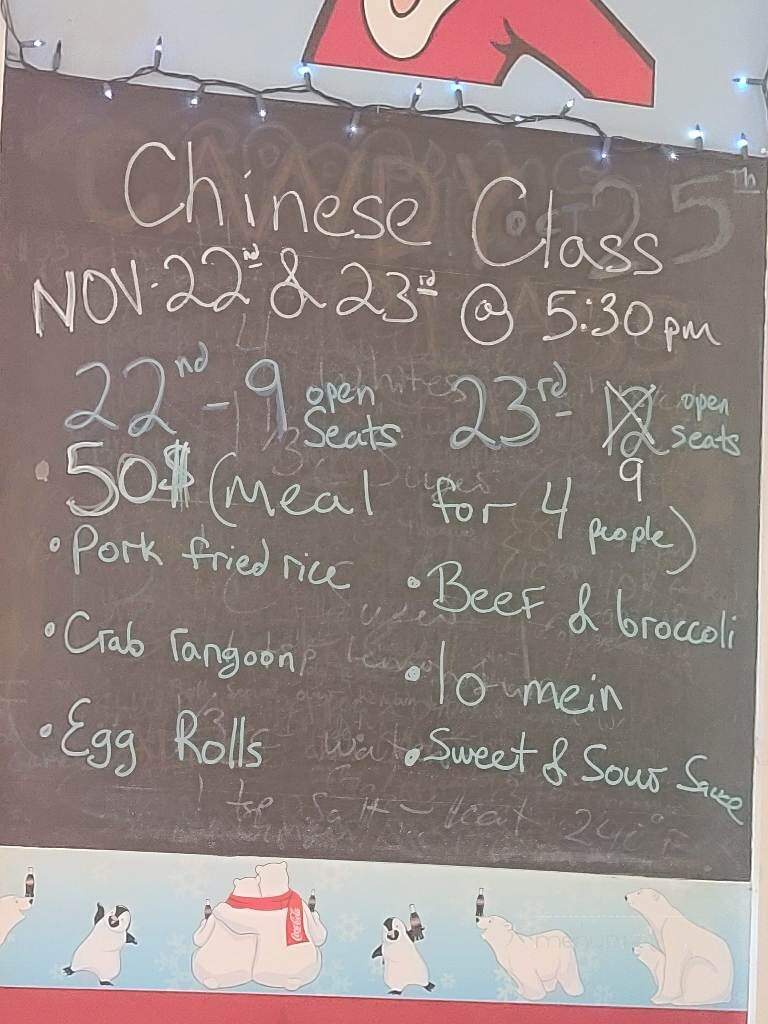 Chinese Class
NOV. 22nd & 23rd @ 5:30pm
22nd - 9 open Seats 23rd 12 open seats
9
50$ (meal for 4 people)
• Pork fried rice
• Beef & broccoli
• Crab rangoon
• lo mein
• Egg Rolls
• Sweet & Sour Sauce
Coca-Cola